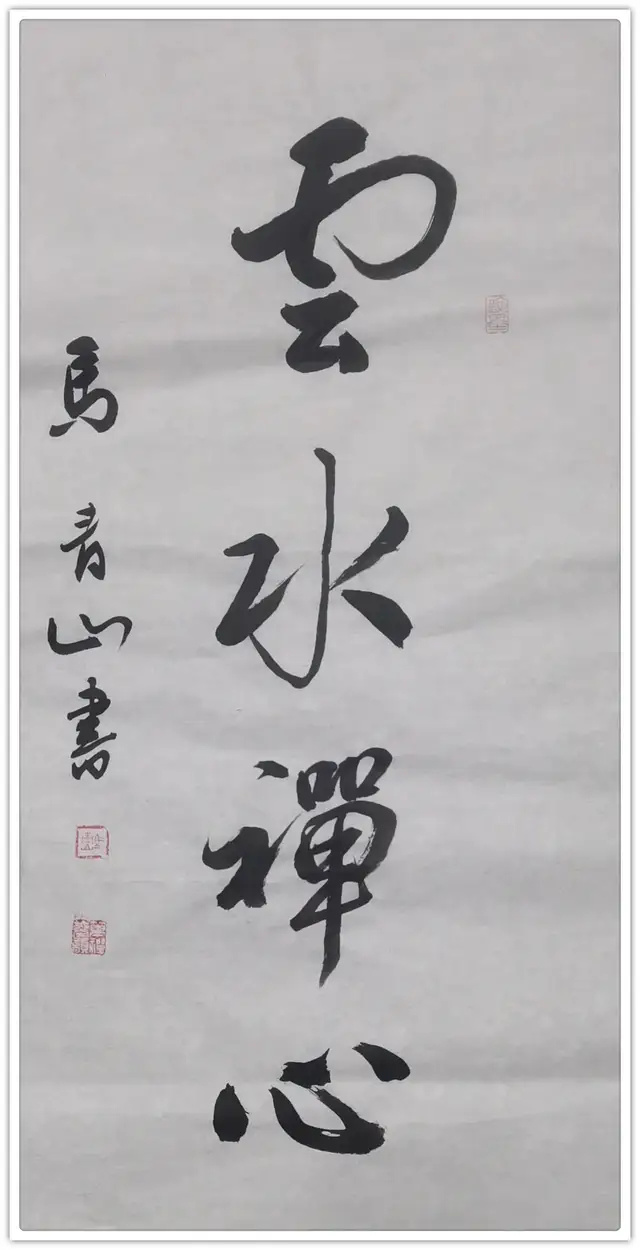 雲水禪心
馬青山書